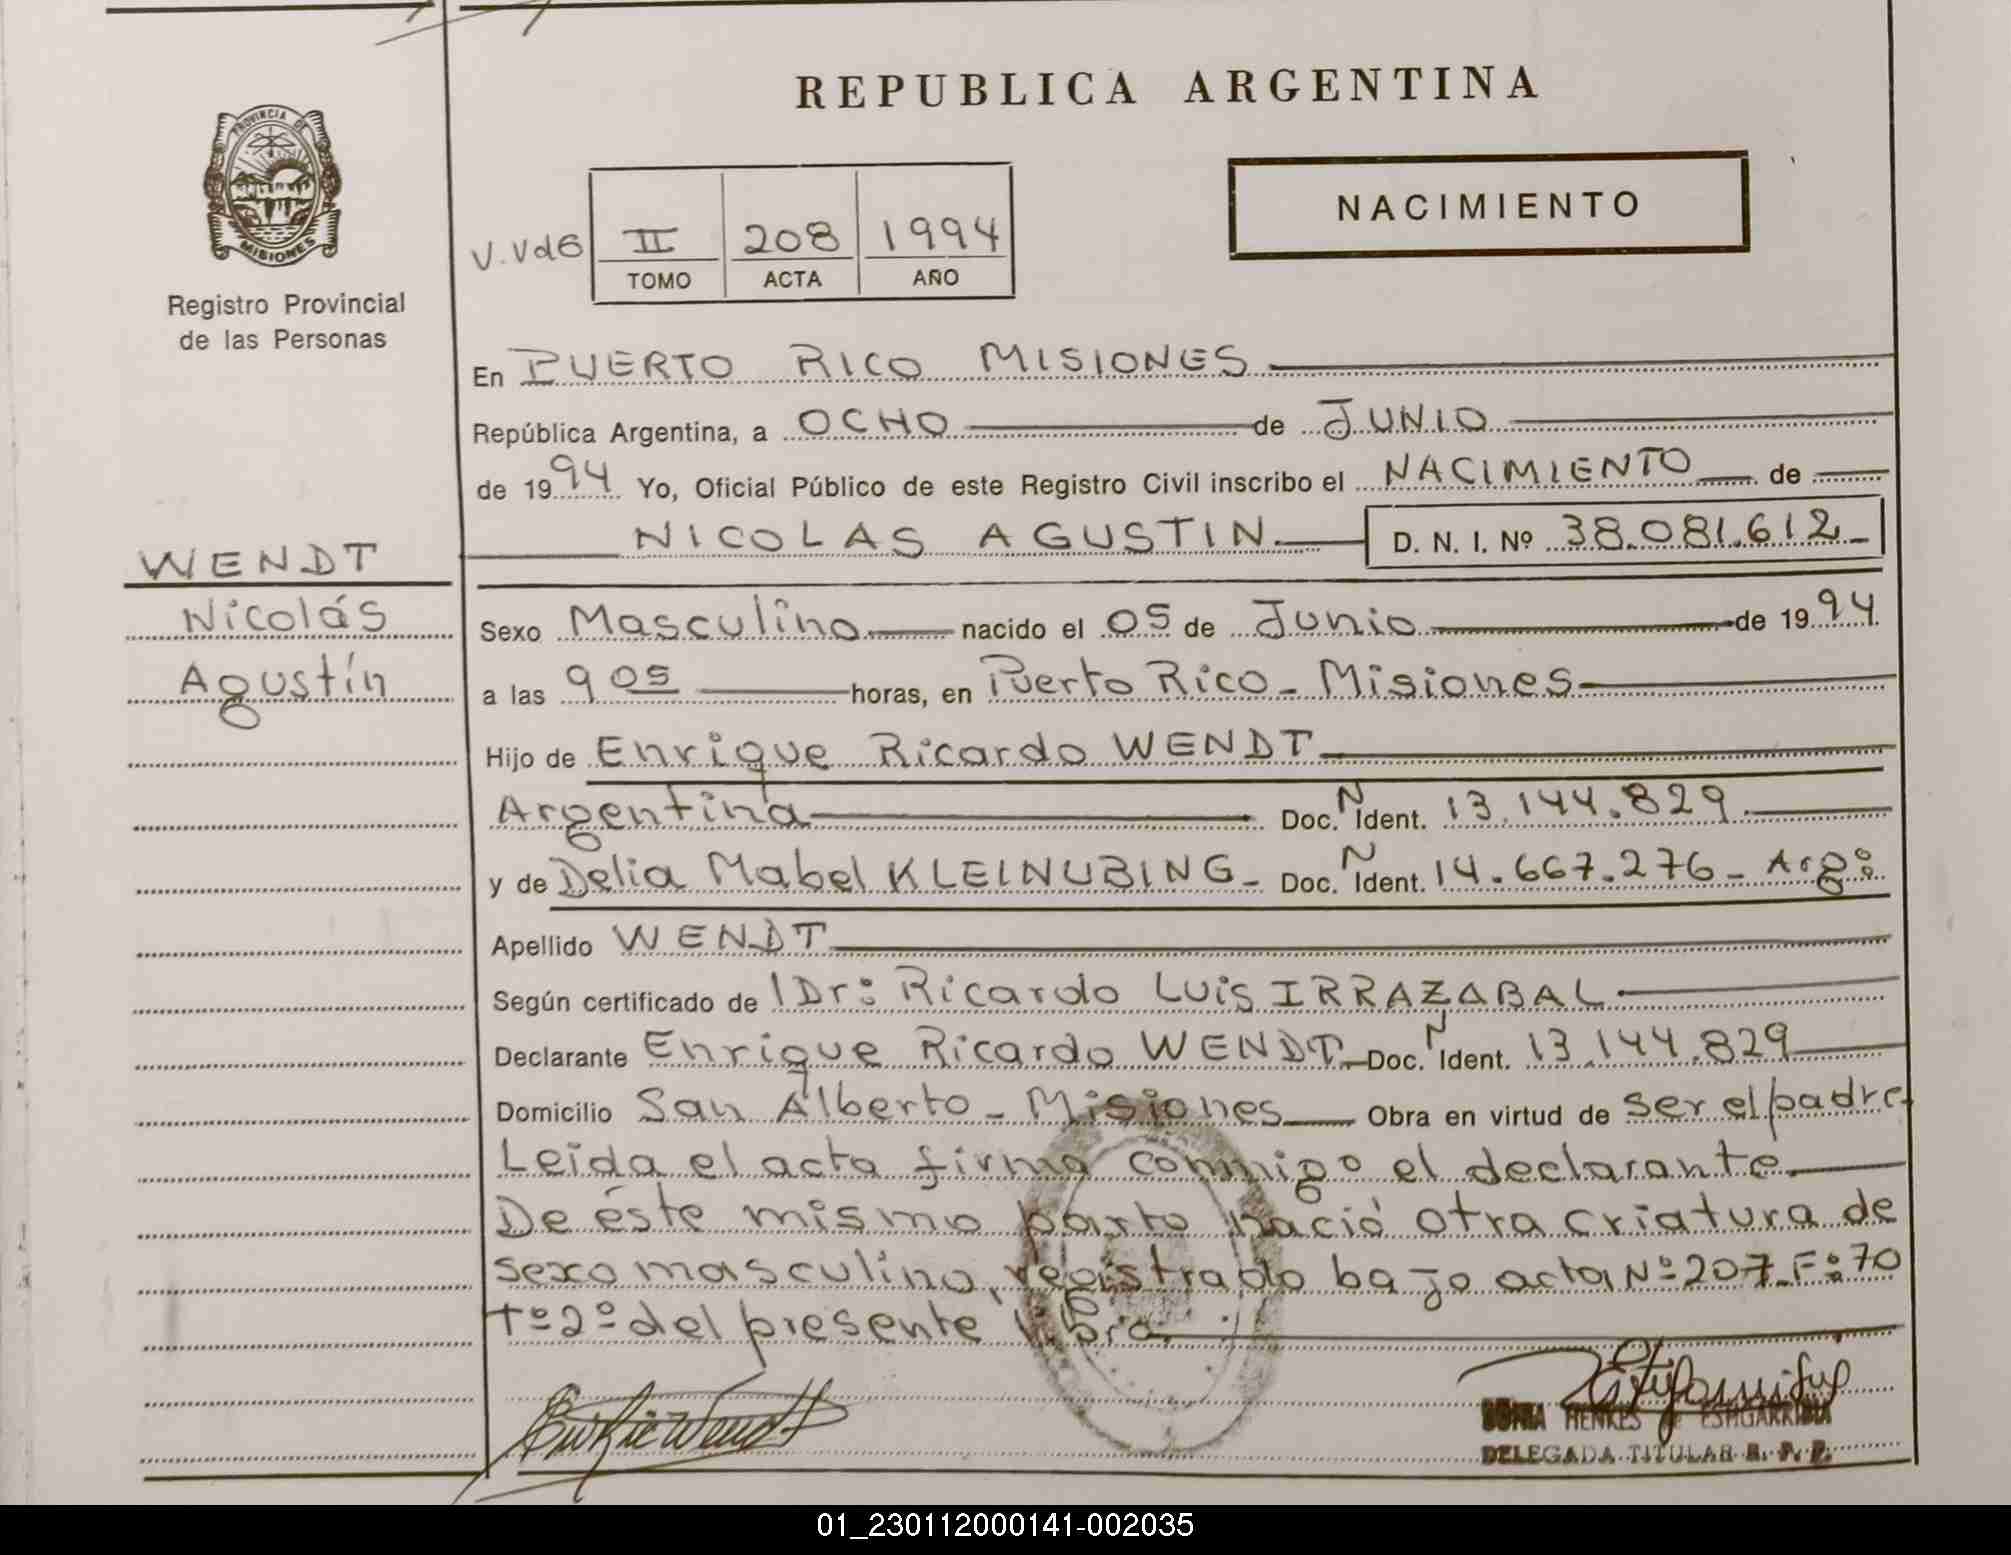 REPUBLICA ARGENTINA
PROVINCIA DE
MISIONES
Registro Provincial
de las Personas
NACIMIENTO
V.Vd6
II 208 1994
TOMO ACTA AÑO
En PUERTO RICO MISIONES
República Argentina, a OCHO de JUNIO
de 1994 Yo, Oficial Público de este Registro Civil inscribo el NACIMIENTO de
NICOLAS AGUSTIN D. N. I. Nº 38.081.612
WENDT
Nicolás
Agustín
Sexo Masculino nacido el 05 de Junio de 1994
a las 9 05 horas, en Puerto Rico - Misiones
Hijo de Enrique Ricardo WENDT
Argentina Doc. N Ident. 13.144.829
y de Delia Mabel KLEINUBING - Doc. N Ident. 14.667.276 - Argº
Apellido WENDT
Según certificado de Dr: Ricardo Luis IRRAZABAL
Declarante Enrique Ricardo WENDT Doc. N Ident. 13.144.829
Domicilio San Alberto - Misiones Obra en virtud de ser el padre
Leida el acta firma conmigo el declarante
De éste mismo parto nació otra criatura de
sexo masculino, registrado bajo acta Nº 207 Fº 70
Tº 2º del presente libro.
SONIA HENKES de ESTIGARRIBIA
DELEGADA TITULAR R. P. P.
01_230112000141-002035